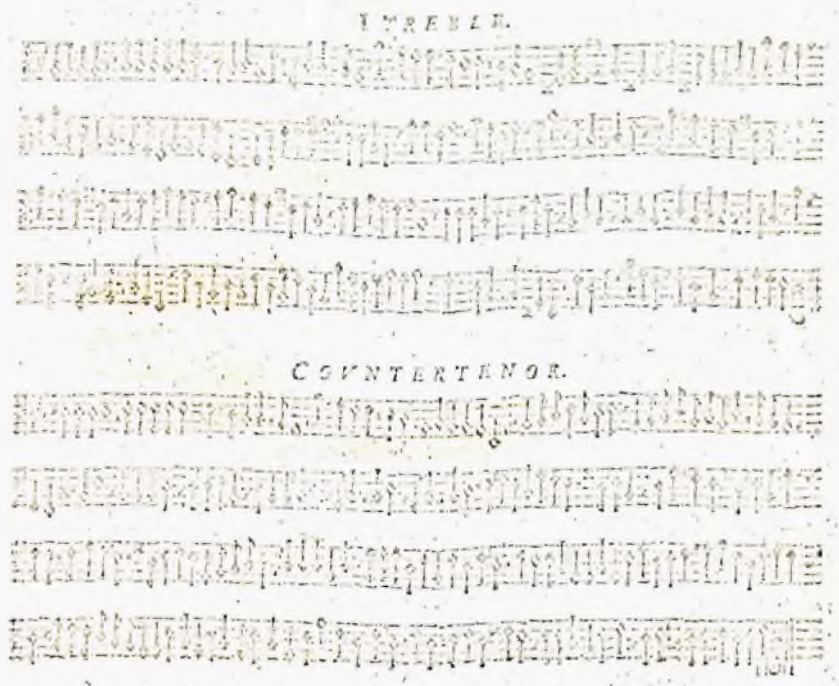 TREBLE.
COVNTERTENOR.